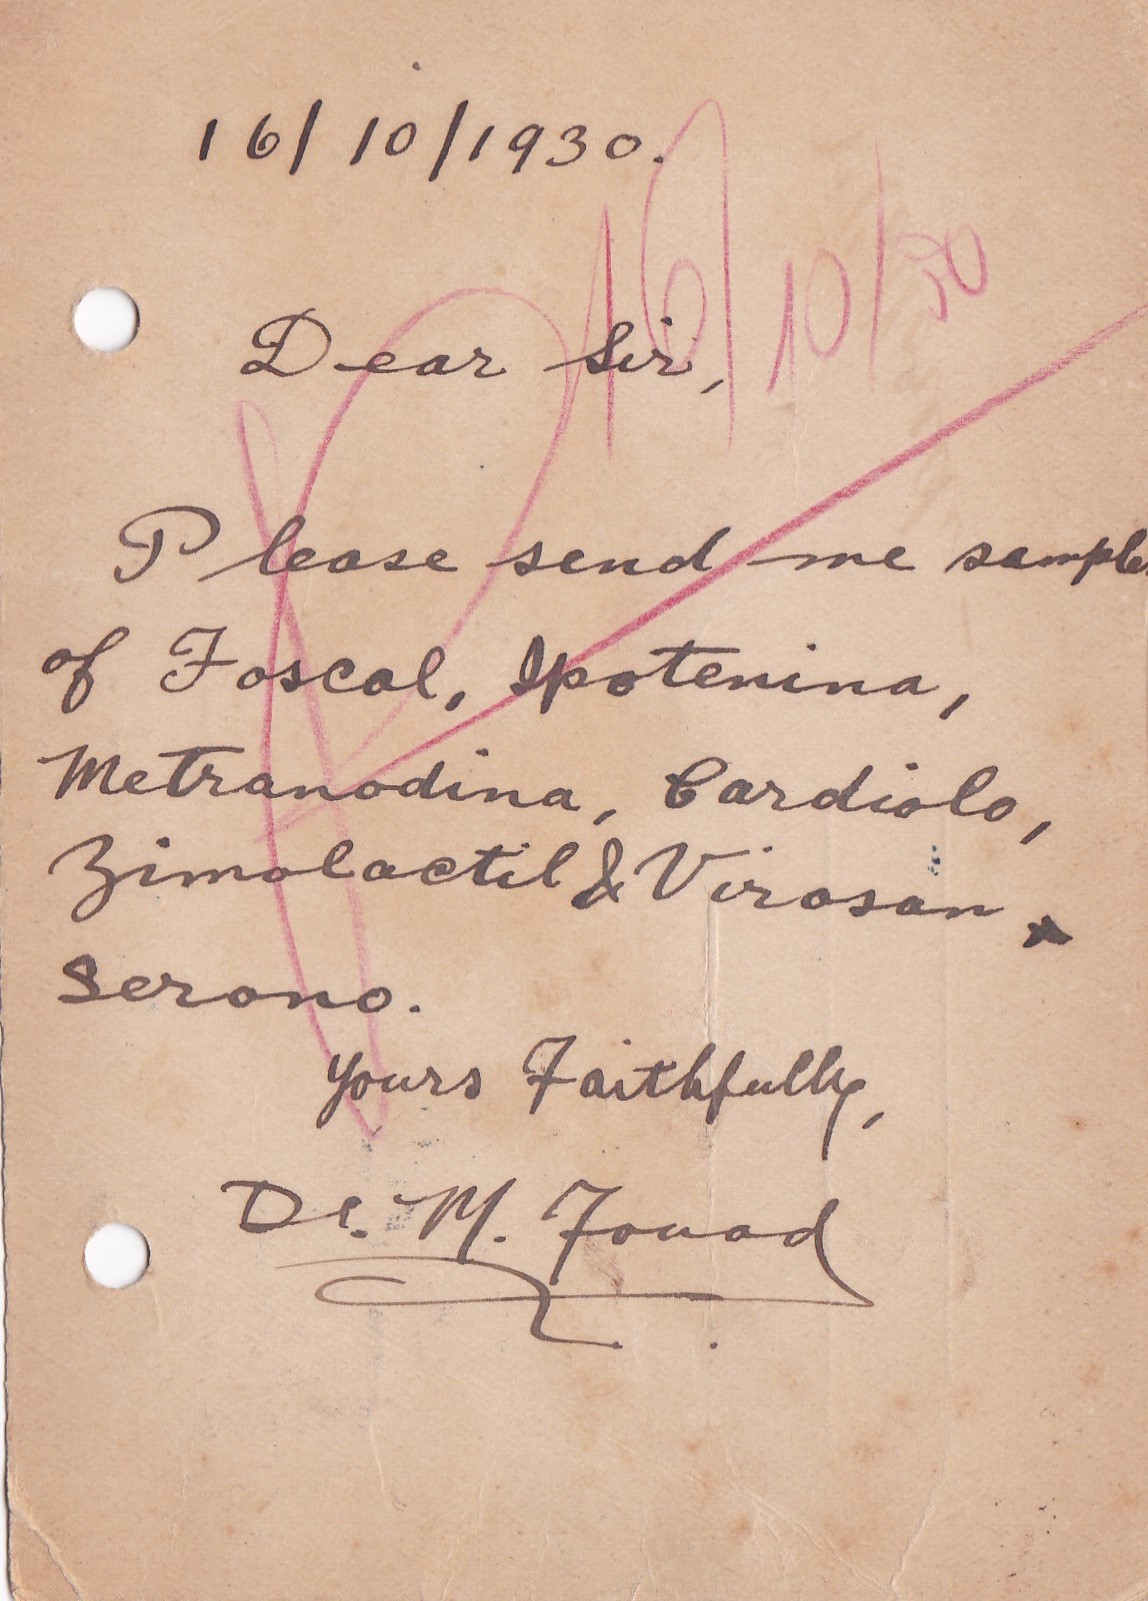 16/10/1930.
16/10/30
Dear Sir,
Please send me samples
of Foscal, Ipotenina,
Metranodina, Cardiolo,
Zimolactil & Virosan
Serono.
Yours Faithfully,
Dr. M. Fouad